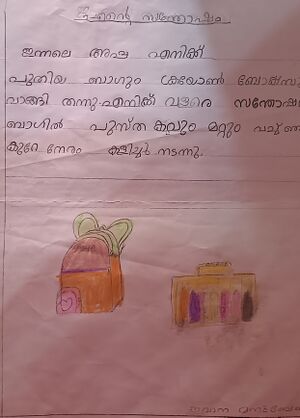 എന്റെ സന്തോഷം
ഇന്നലെ അച്ഛ എനിക്ക്
പുതിയ ബാഗും ക്രയോൺ ബോക്സും
വാങ്ങി തന്നു. എനിക്ക് വളരെ സന്തോഷം
ബാഗിൽ പുസ്തകവും മറ്റും
കുറേ നേരം കളിച്ചു നടന്നു.